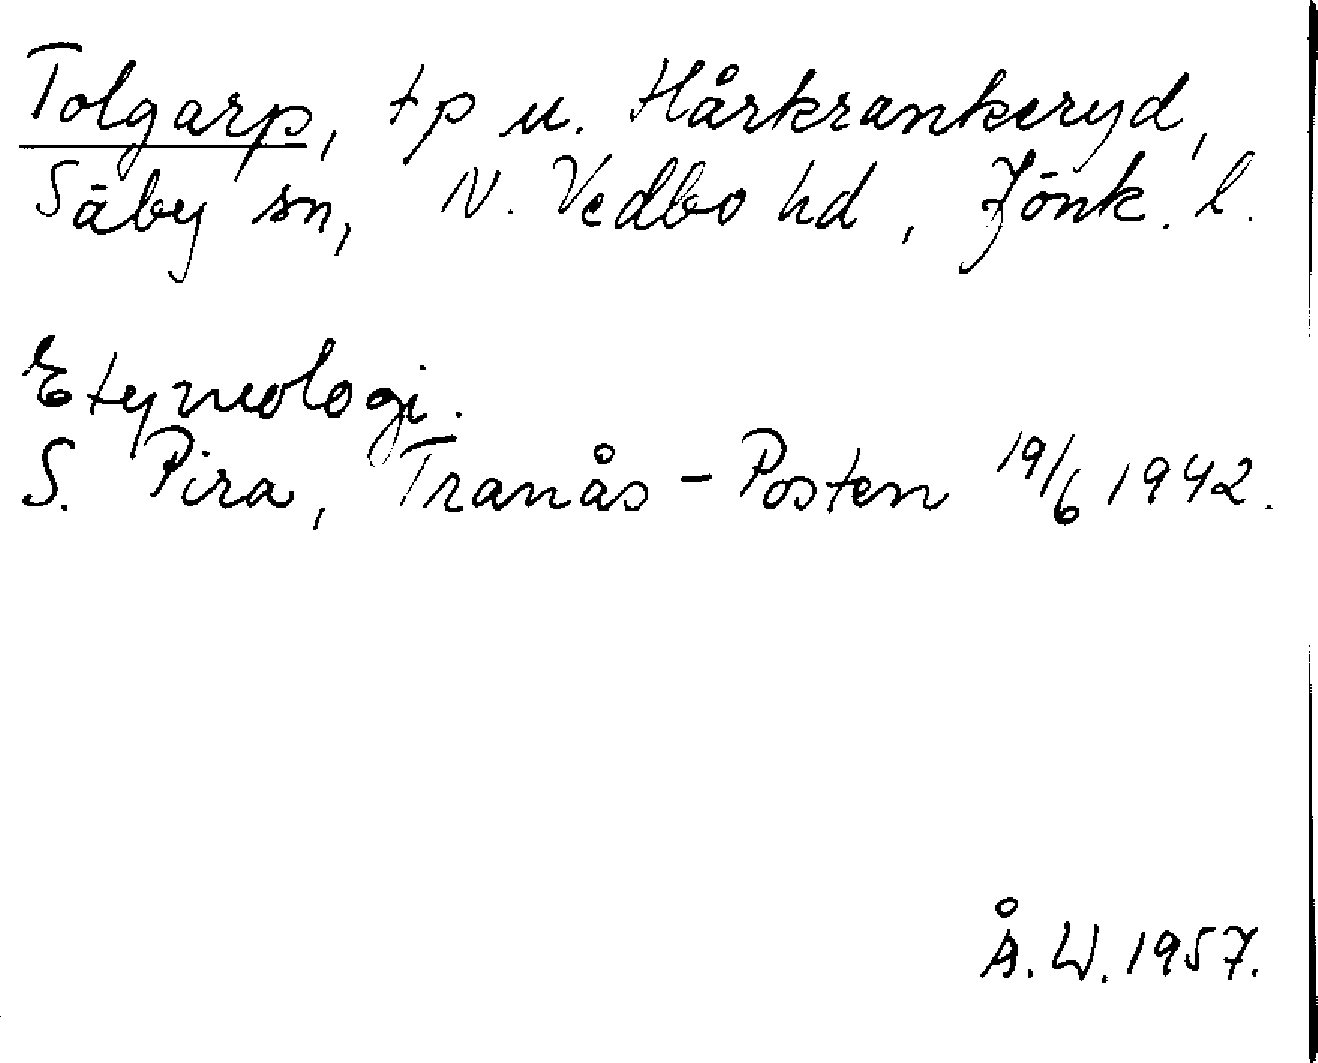 Tolgarp, tp u. Hårkrankeryd,
Säby sn, N. Vedbo hd, Jönk. l.
Etymologi.
S. Pira, Tranås-Posten 19/6 1942.
Å. W. 1957.